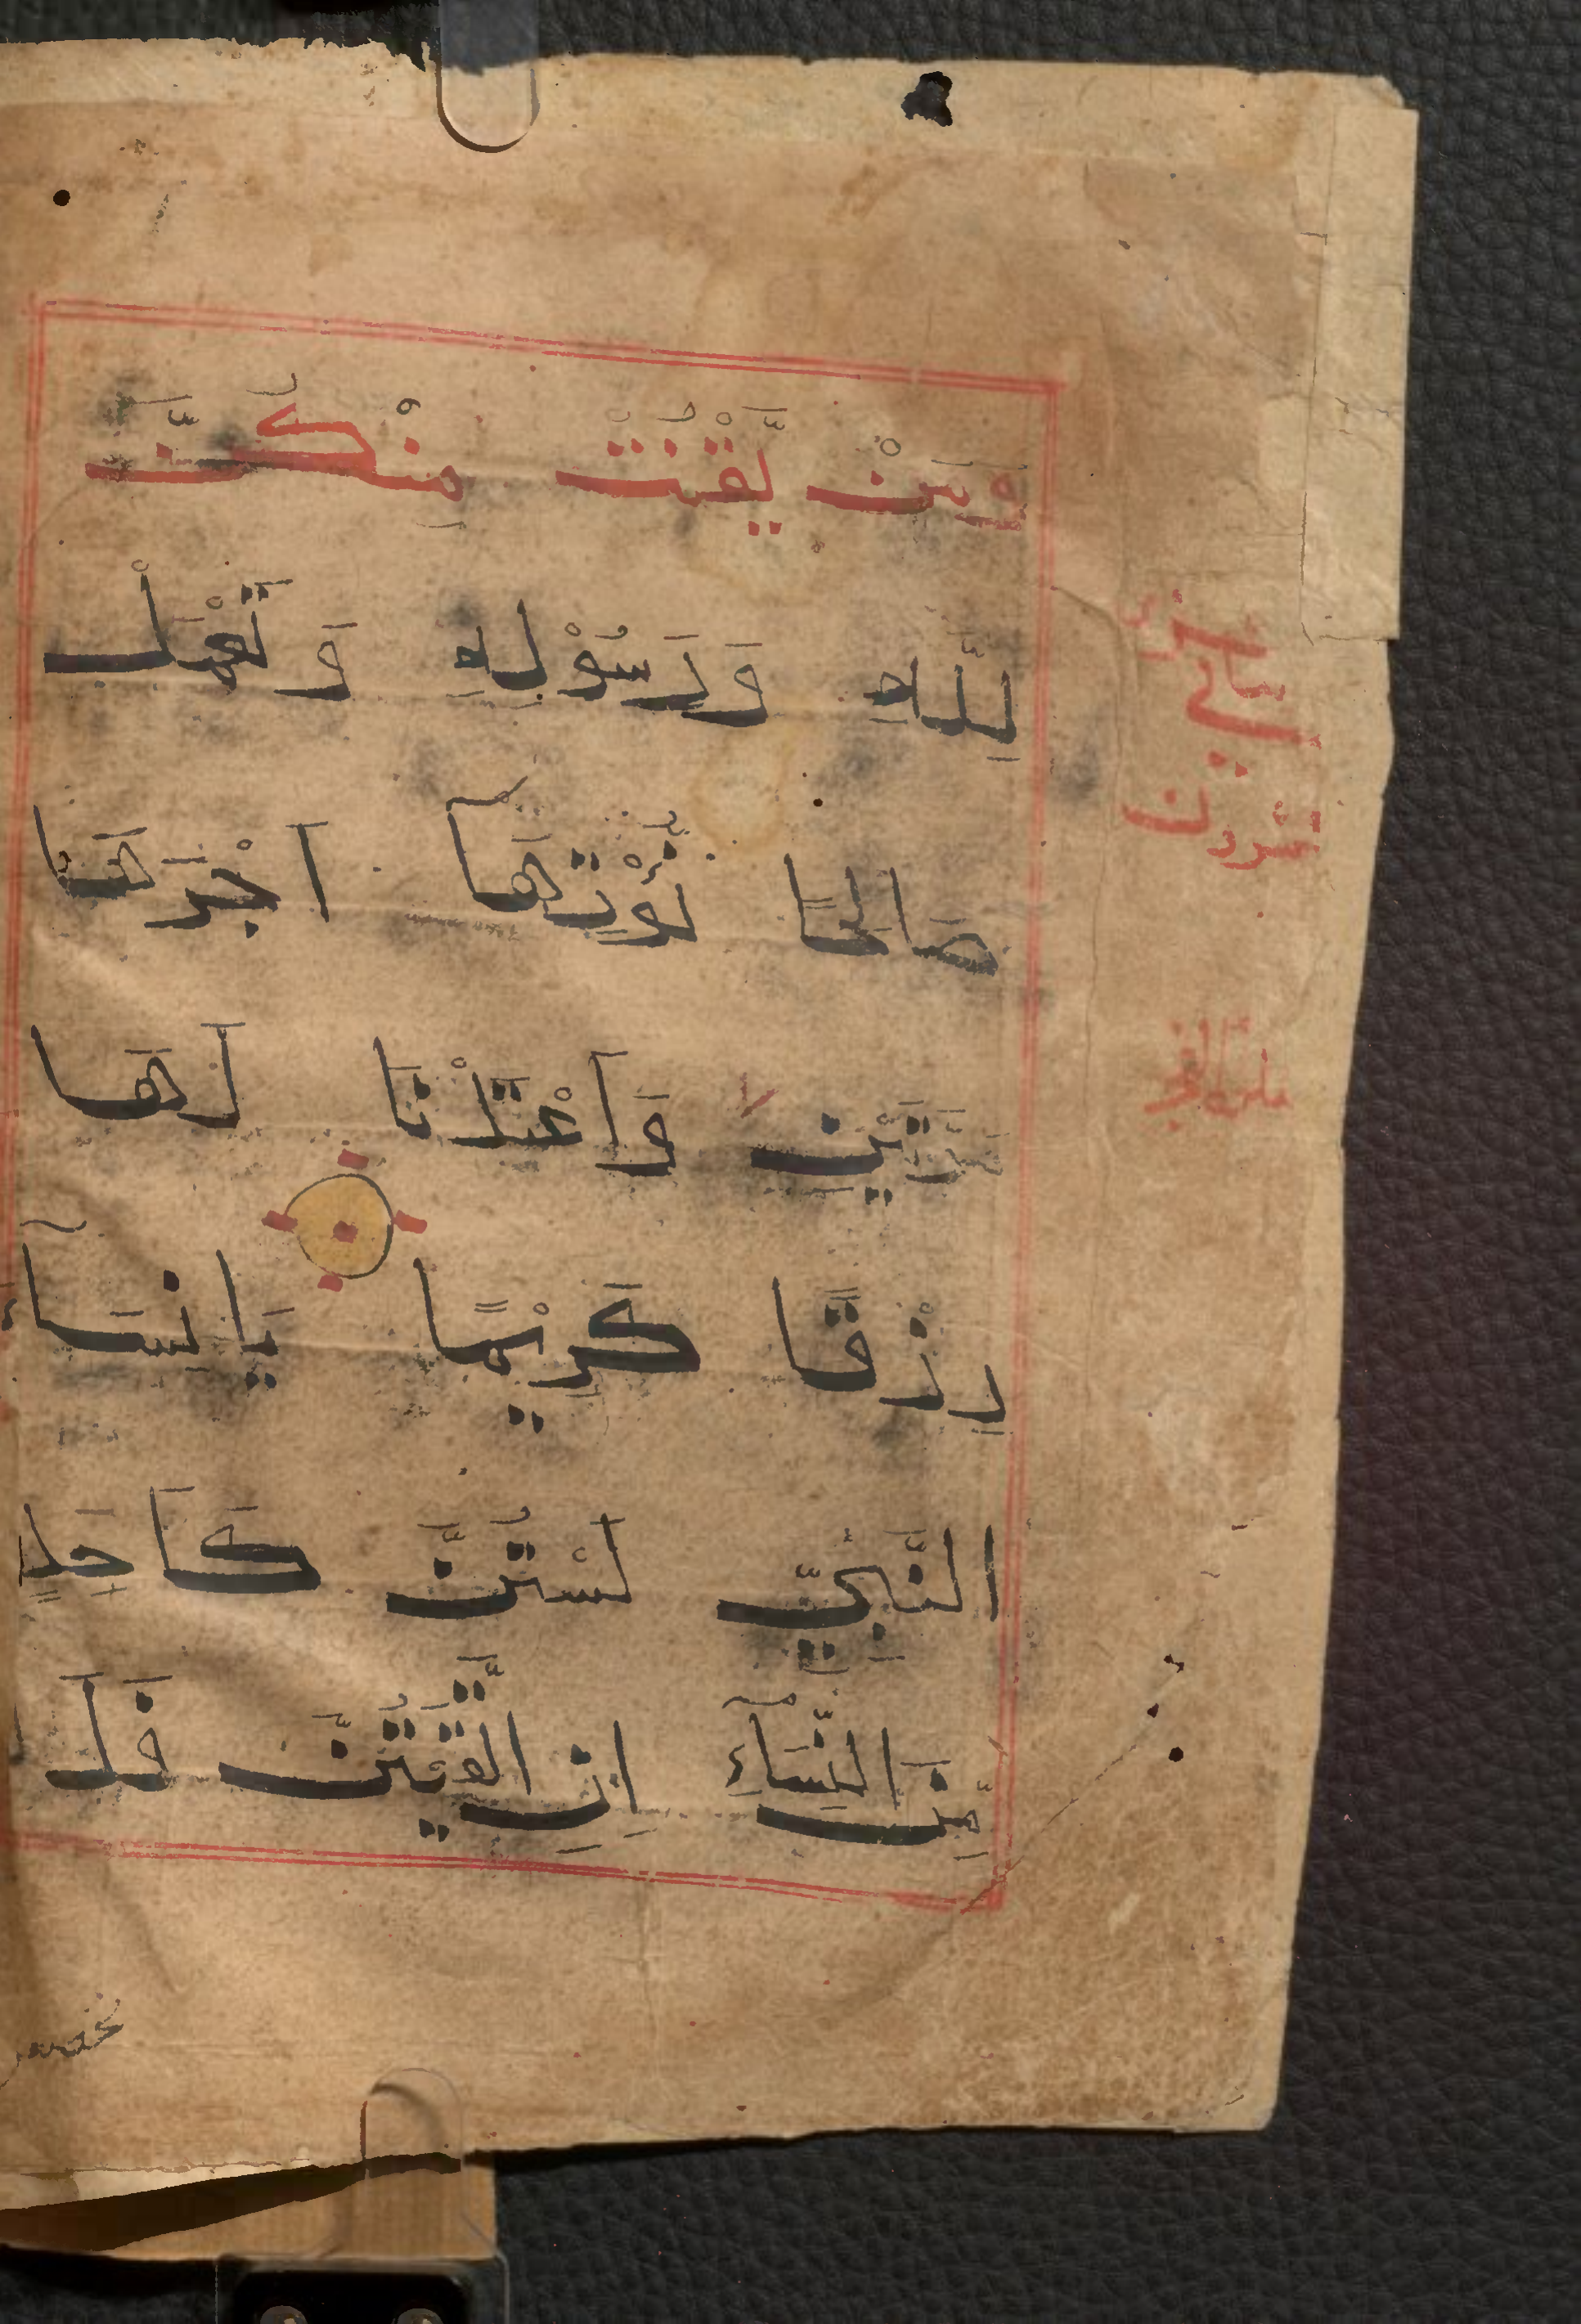 وَمَنْ يَّقْنُتْ مِنْكُنَّ
لِلّٰهِ وَرَسُوْلِهِ وَتَعْمَلْ
صَالِحًا نُّؤْتِهَا اَجْرَهَا
مَرَّتَيْنِ وَاَعْتَدْنَا لَهَا
رِزْقًا كَرِيْمًا يَا نِسَآءَ
النَّبِيِّ لَسْتُنَّ كَاَحَدٍ
مِّنَ النِّسَآءِ اِنِ اتَّقَيْتُنَّ فَلَا